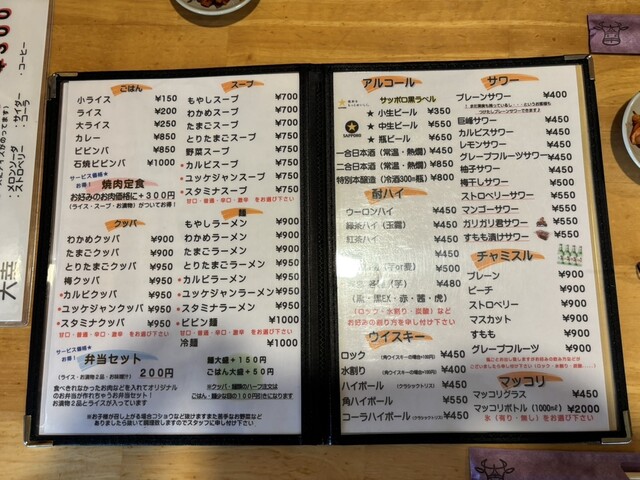 ・コーヒー
・サイダー
・コーラ
・ストロベリー
ごはん
小ライス ¥150
ライス ¥200
大ライス ¥250
カレー ¥850
ビビンバ ¥850
石焼ビビンバ ¥1000
サービス価格★
お得!
焼肉定食
お好みのお肉価格に+300円
(ライス・スープ・お漬物)がついてお得!
クッパ
わかめクッパ ¥900
たまごクッパ ¥900
とりたまクッパ ¥950
梅クッパ ¥950
・カルビクッパ ¥950
・ユッケジャンクッパ ¥950
・スタミナクッパ ¥950
甘口・普通・辛口・激辛 をお選び下さい
サービス価格★
お得!
弁当セット
200円
(ライス・お漬物2品・お味噌汁)
食べきれなかったお肉などを入れてオリジナル
のお弁当が作れちゃうお弁当セット!
お漬物2品とライスが入っています
スープ
もやしスープ ¥700
わかめスープ ¥700
たまごスープ ¥700
とりたまごスープ ¥750
野菜スープ ¥750
・カルビスープ ¥750
・ユッケジャンスープ ¥750
・スタミナスープ ¥750
甘口・普通・辛口・激辛 をお選び下さい
麺
もやしラーメン ¥900
わかめラーメン ¥900
たまごラーメン ¥900
とりたまごラーメン ¥950
・カルビラーメン ¥950
・ユッケジャンラーメン ¥950
・スタミナラーメン ¥950
・ビビン麺 ¥1000
甘口・普通・辛口・激辛 をお選び下さい
冷麺 ¥1000
麺大盛+150円
ごはん大盛+50円
※クッパ・麺類のハーフ注文は
ごはん・麺少な目の100円引きになります
※お子様が召し上がる場合コショウなど抜けますまた苦手な野菜など
ありましたら抜いて調理致しますのでスタッフに申し付け下さい
アルコール
サッポロ黒ラベル
SAPPORO
★ 小生ビール ¥350
★ 中生ビール ¥550
★ 瓶ビール ¥650
一合日本酒(常温・熱燗) ¥450
二合日本酒(常温・熱燗) ¥850
特別本醸造(冷酒300㎖瓶) ¥800
酎ハイ
ウーロンハイ ¥450
緑茶ハイ(玉露)
紅茶ハイ
¥450
¥500
(芋) ¥480
・赤・茜・虎)
(ロック・水割り・炭酸)など
お好みの割り方を申し付け下さい
ウイスキー
ロック ¥450
水割り ¥400
ハイボール ¥450
角ハイボール ¥550
コーラハイボール ¥450
サワー
プレーンサワー ¥400
巨峰サワー ¥450
カルピスサワー ¥450
レモンサワー ¥450
グレープフルーツサワー ¥450
柚子サワー ¥450
梅干しサワー ¥450
ストロベリーサワー ¥450
マンゴーサワー ¥450
ガリガリ君サワー ¥550
すもも漬けサワー ¥550
チャミスル
プレーン ¥900
ピーチ ¥900
ストロベリー ¥900
マスカット ¥900
すもも ¥900
グレープフルーツ ¥900
マッコリ
マッコリグラス ¥450
マッコリボトル(1000㎖) ¥2000
氷(有り・無し)をお選び下さい